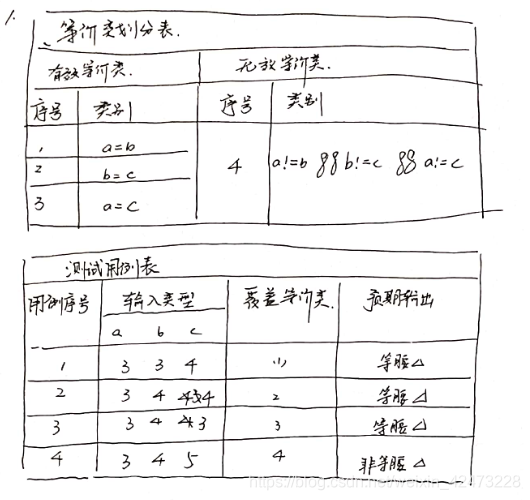 1.
等价类划分表.
有效等价类. 无效等价类.
序号 类别 序号 类别
1 a=b
2 b=c
3 a=c
4 a!=b && b!=c && a!=c
测试用例表
用例序号 输入类型 覆盖等价类. 预期输出
a b c
1 3 3 4 (1) 等腰△
2 3 4 4 2 等腰△
3 3 4 3 3 等腰△
4 3 4 5 4 非等腰△